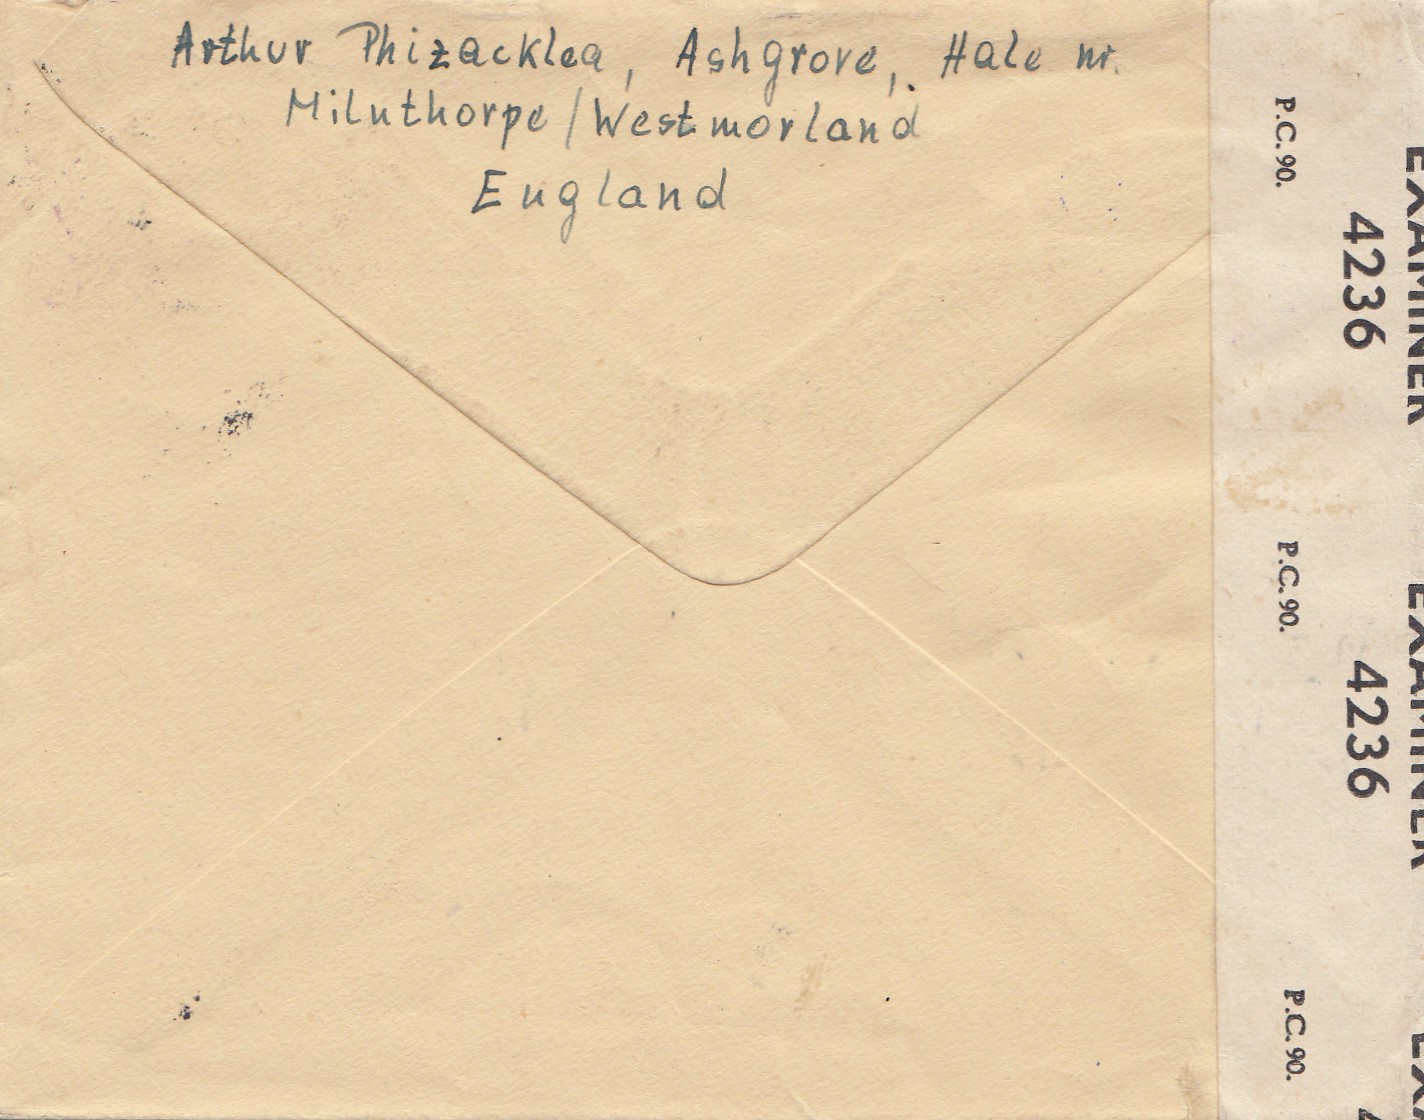 Arthur Phizacklea, Ashgrove, Hale nr.
Milnthorpe/Westmorland
England
P.C. 90.
EXAMINER
4236
P.C. 90.
EXAMINER
4236
P.C. 90.